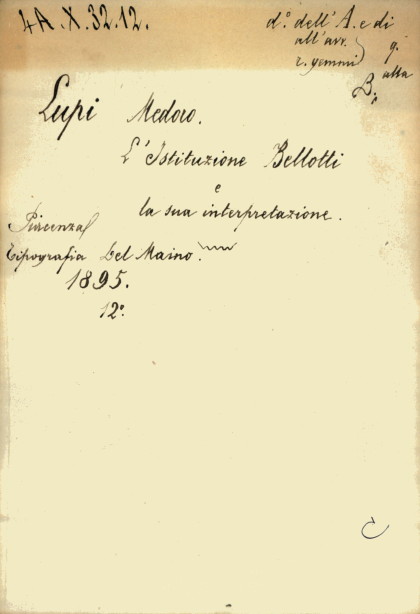 4A.X.32.12.
d.º dell'A. e di
all'avv.
alla
B.
Lupi Medoro.
L'Istituzione Bellotti
e
la sua interpretazione.
Piacenza
Tipografia Del Maino.
1895.
12º.
C